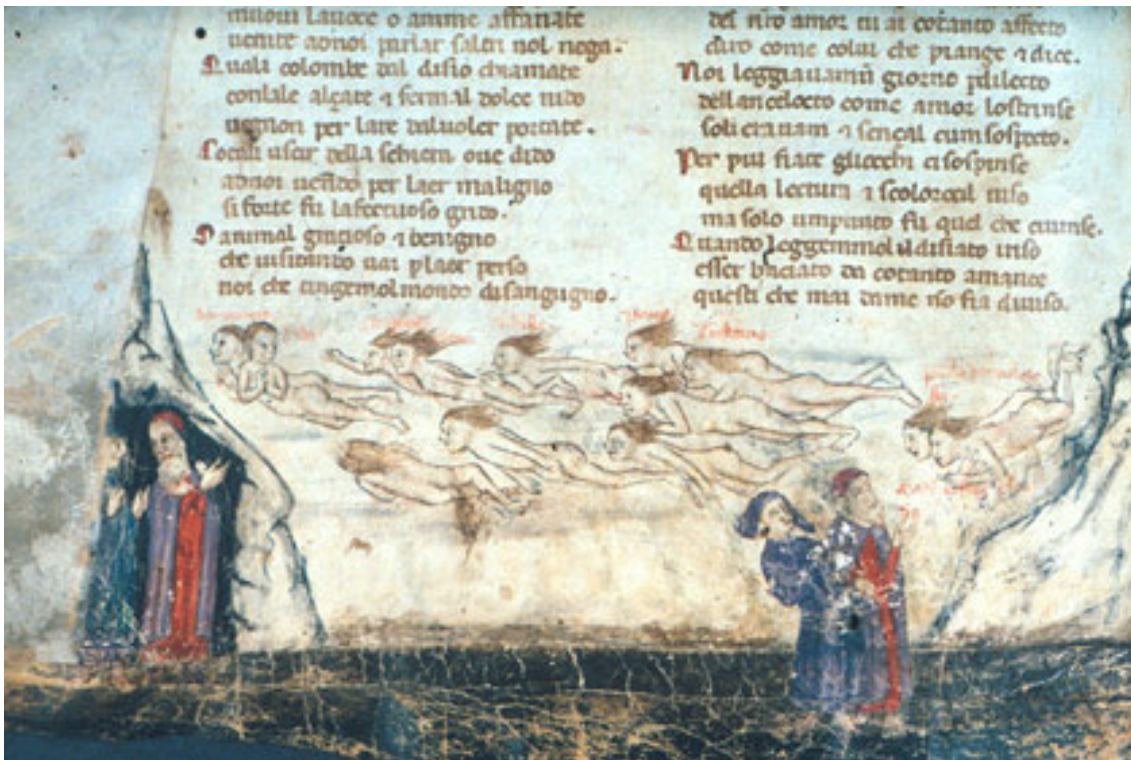 muoui lauoce o anime affanate
uenite adnoi parlar saltri nol nega.
Quali colombe dal disio chiamate
conlale alçate ⁊ fermal dolce nido
uegnon per lare daluoler portate.
Cotali uscir della schiera oue dido
adnoi uenĕdo per laer maligno
si forte fu laffectuoso grido.
O animal gratioso ⁊ benigno
che uisitando uai plaer perso
noi che tingemol mondo disangugno.
del nro amor tu ai cotanto affecto
diro come colui che piange ⁊ dice.
Noi leggiauamũ giorno pdilecto
dellancelocto come amor lostrinse
soli erauam ⁊ sençal cun sospecto.
Per piu fiate gliocchi cisospinse
quella lectura ⁊ scolorocil uiso
ma solo umpunto fu quel che ciuinse.
Quando leggemmo il disiato riso
esser basciato da cotanto amante
questi che mai dame nõ fia diuiso.